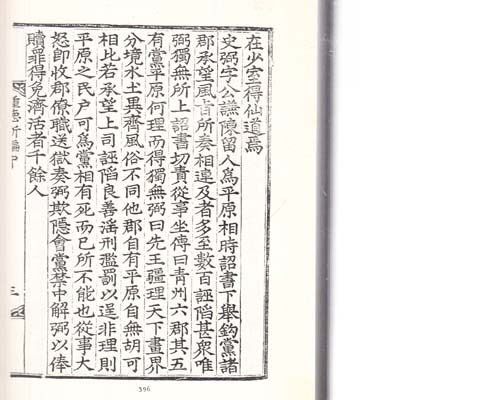 在少室得仙道焉
史弼字公謙陳留人爲平原相時詔書下舉鉤黨諸
郡承望風旨所奏相連及者多至數百誣陷甚衆唯
弼獨無所上詔書切責從事坐傳曰青州六郡其五
有黨平原何理而得獨無弼曰先王疆理天下畫界
分境水土異齊風俗不同他郡自有平原自無胡可
相比若承望上司誣陷良善滛刑濫罰以逞非理則
平原之民户可爲黨相有死而已所不能也從事大
怒即收郡僚職送獄奏弼欺隱會黨禁中解弼以俸
贖罪得免濟活者千餘人
三
396